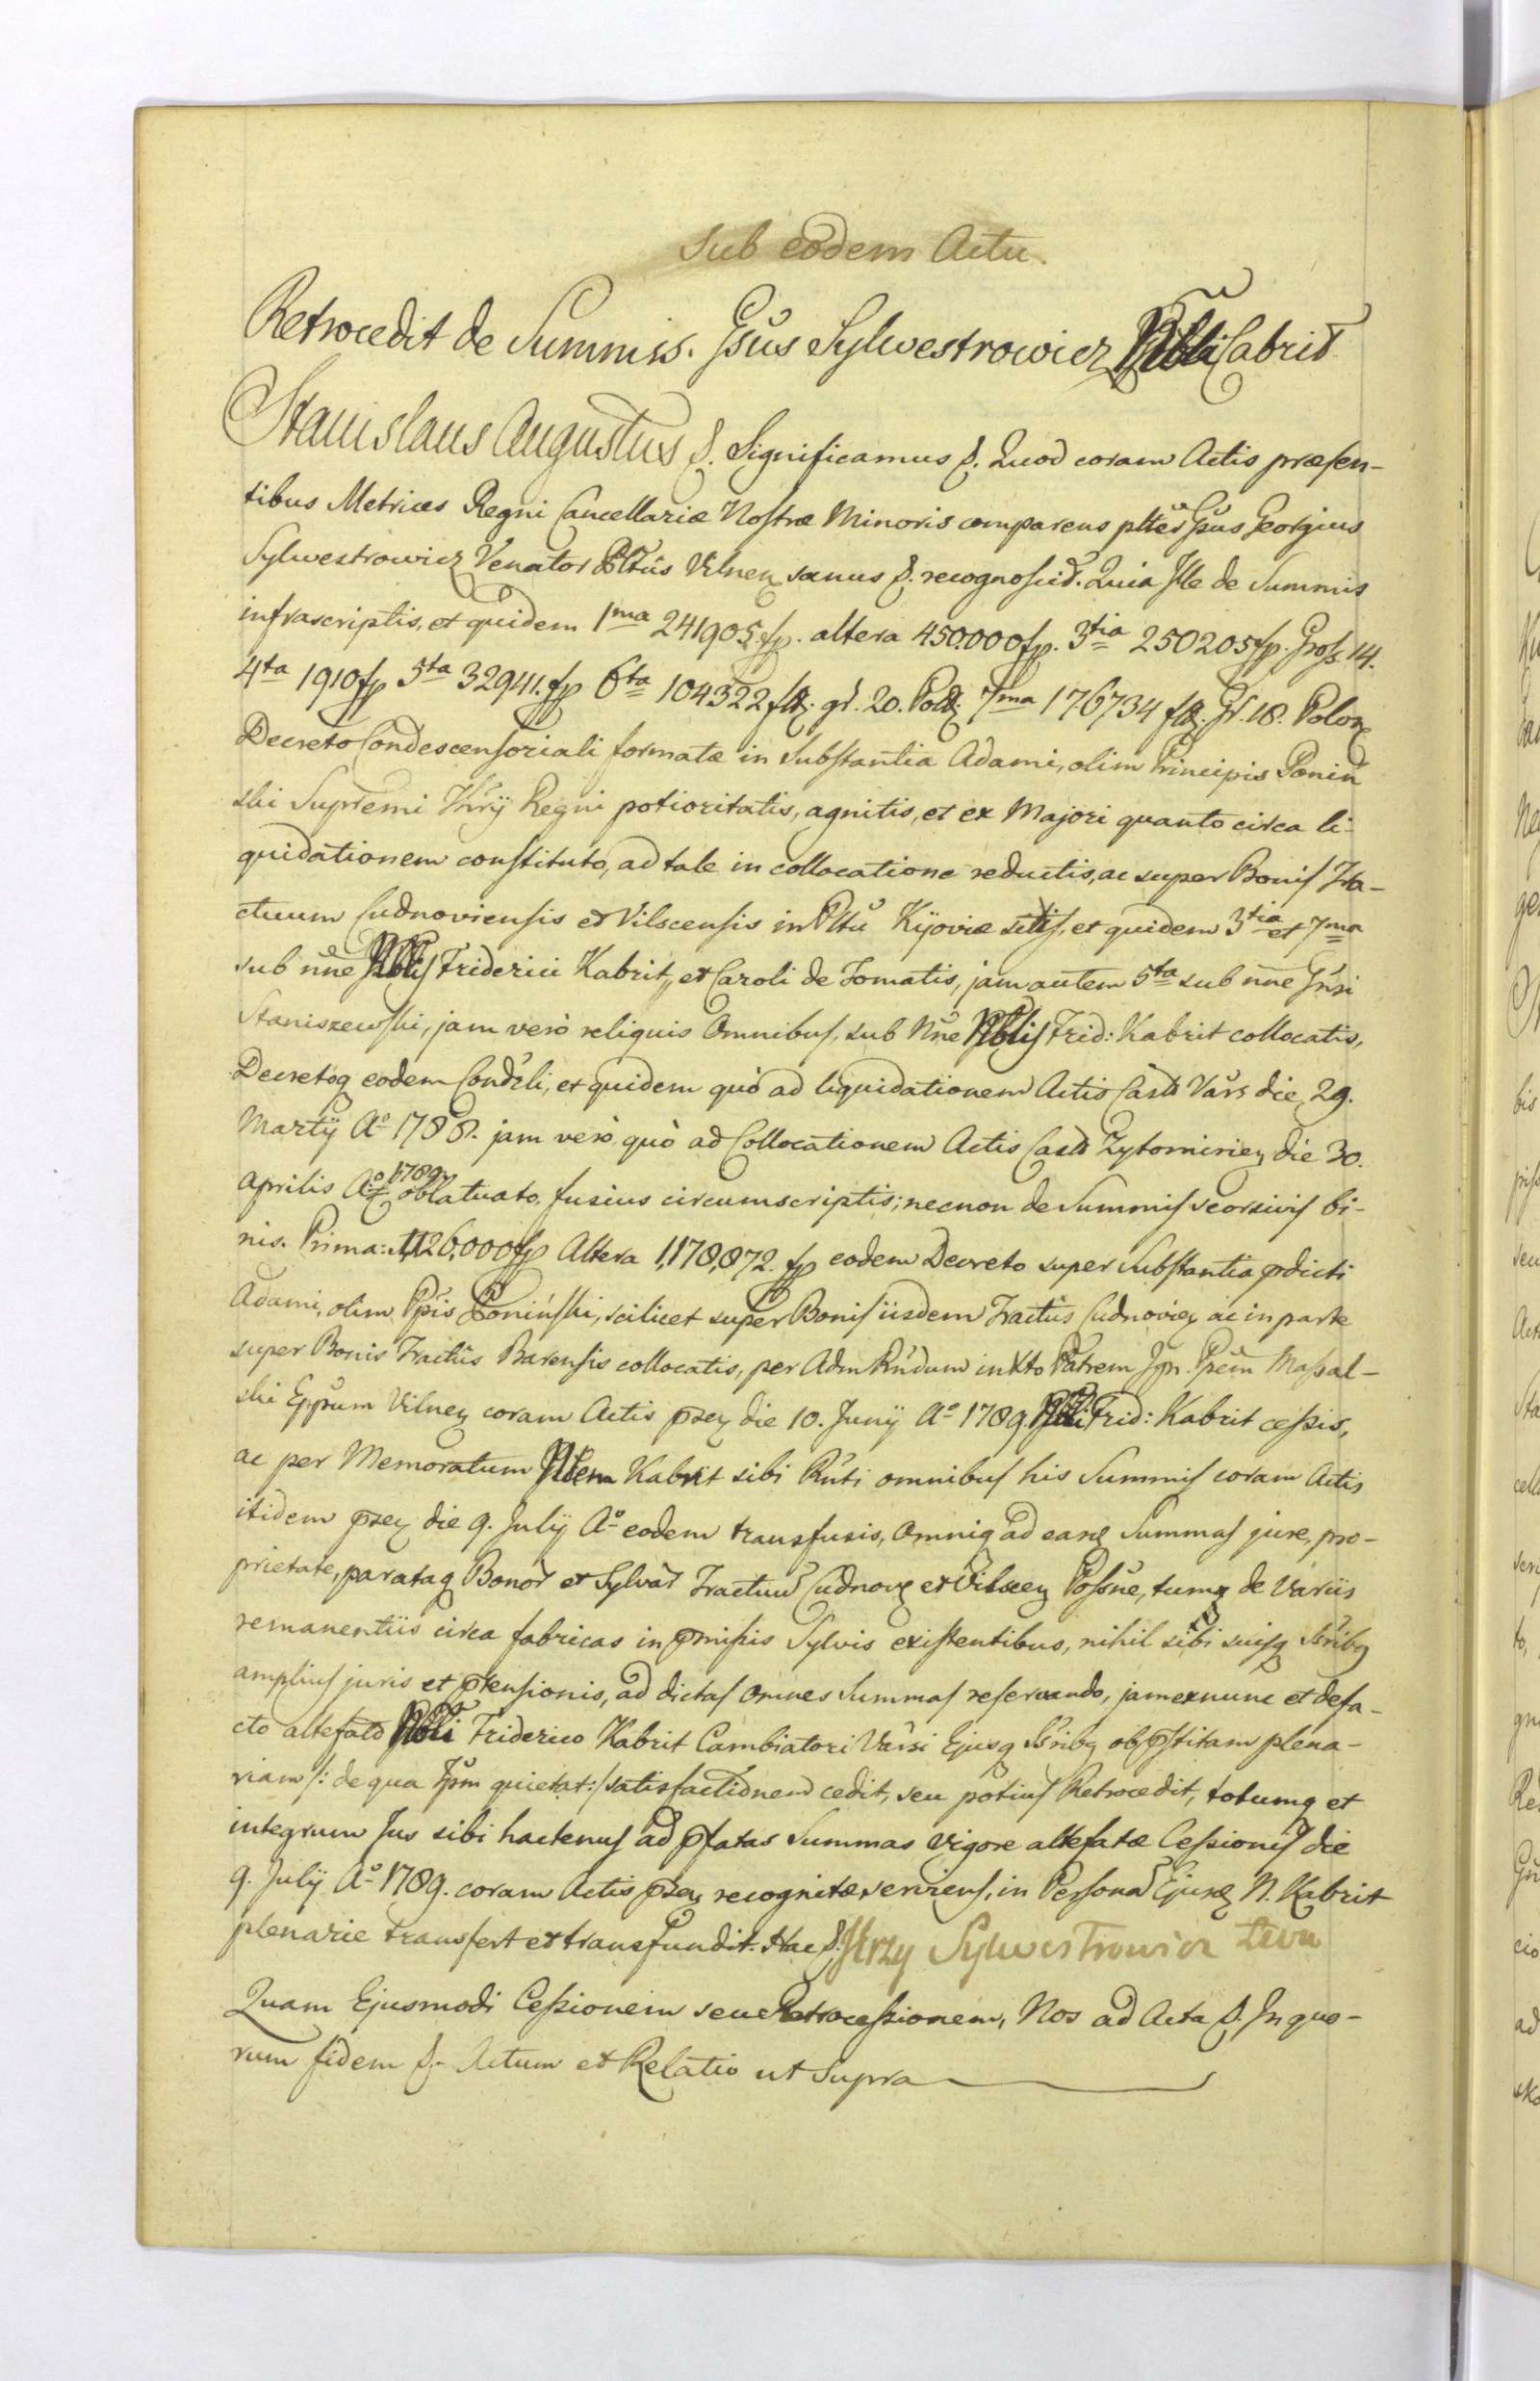 Sub eodem Actu.
Retrocedit de Summis. Gsus Sylwestrowicz Nbli Cabrit
Stanislaus Augustus &. Significamus &. Quod coram Actis præsen-
tibus Metrices Regni Cancellariæ Nostræ Minoris comparens pltter Gsus Georgius
Sylwestrowicz Venator Pltus Vilnen sanus &. recognoscit. Quia Ille de Summis
infrascriptis, et quidem 1ma 241905.fp. altera 450.000fp. 3tia 250205fp. Gross. 14.
4ta 1910fp 5ta 32941.fp 6ta 104322 fl. gr. 20. Poll. 7ma 176734 fl. Gr. 18. Polon
Decreto Condescensoriali formatæ in Substantia Adami, olim Principis Poniń
ski Supremi Thrij Regni potioritatis, agnitis, et ex Majori quanto circa li-
quidationem constituto, ad tale in collocatione reductis, ac super Bonis Tra-
ctuum Cudnoviensis et Vilscensis in Pltu Kijoviæ sitis, et quidem 3tia et 7ma
sub nne Nblis Friderici Kabrit, et Caroli de Tomatis, jam autem 5ta sub nne Gnsi
Staniszewski, jam vero reliquis Omnibus, sub Nne Nblis Frid: Kabrit collocatis,
Decretoq eodem Condcli, et quidem quò ad liquidationem Actis Castr Vars die 29.
Martij Ao 1788. jam verò quò ad Collocationem Actis Castr Zytomirien die 30.
Aprilis Ao 1789 oblatuato, fusius circumscriptis; necnon de Summis seorsivis bi-
nis. Prima: 1126,000fp Altera 1,178,872. fp eodem Decreto super Substantia pdicti
Adami, olim Ppis Poniński, scilicet super Bonis iisdem Tractus Cudnovien ac in parte
super Bonis Tractus Barensis collocatis, per Adm Rndum in Xto Patrem Jpn. Ppem Massal-
ski Eppum Vilnen coram Actis psen die 10. Junij Ao 1789. Nbli Frid: Kabrit cessis,
ac per Memoratum Nblem Kabrit sibi Rnti omnibus his Summis coram Actis
itidem psen die 9. Julij Ao eodem transfusis, Omniq ad easd Summas jure, pro-
prietate, parataq Bonor et Sylvar Tractuu Cudnov et Vilscen Possne, tumq de Variis
remanentiis circa fabricas in pmissis Sylvis existentibus, nihil sibi suisq Ssribq
amplius juris et ptensionis, ad dictas Omnes Summas reservando, jam exnunc et defa-
cto altefato Nbli Friderico Kabrit Cambiatori Varsi Ejusq Ssribq ob pstitam plena-
riam /: de qua Ipm quietat :/ satisfactionem cedit, seu potius Retrocedit, totumq et
integrum Jus sibi hactenus ad pfatas Summas vigore altefatæ Cessionis die
9. Julij Ao 1789. coram Actis psen recognitæ serviens, in Personam Ejusd N. Kabrit
plenarie transfert et transfundit. Hac &. Jerzy Sylwestrowicz Łwu
Quam Ejusmodi Cessionem seu Retrocessionem, Nos ad Acta &. In quo-
rum fidem &.- Actum et Relatio ut Supra